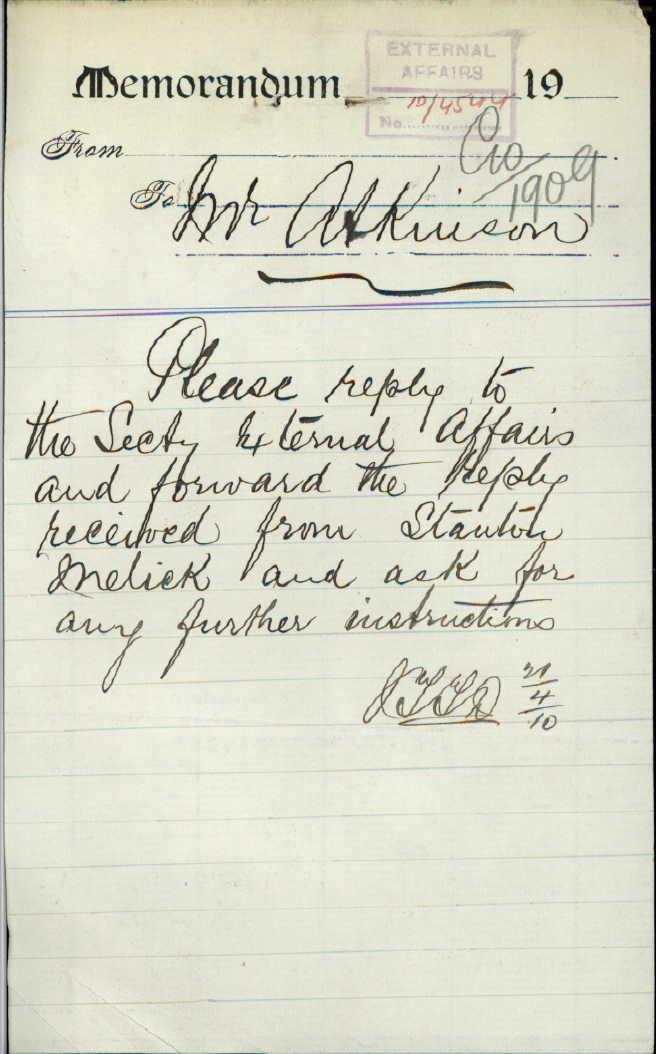 EXTERNAL
AFFAIRS
Memorandum 19
10/4544
No.
From
1909
To Mr Atkinson
Please reply to
the Secty External Affairs
and forward the reply
received from Stanton
Melick and ask for
any further instructions
21
4
10